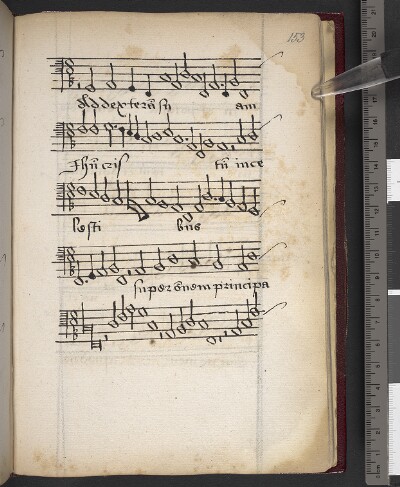 153
Ad dexterā su am
Ihū cris tū in ce
lesti bus
super ōnem principa